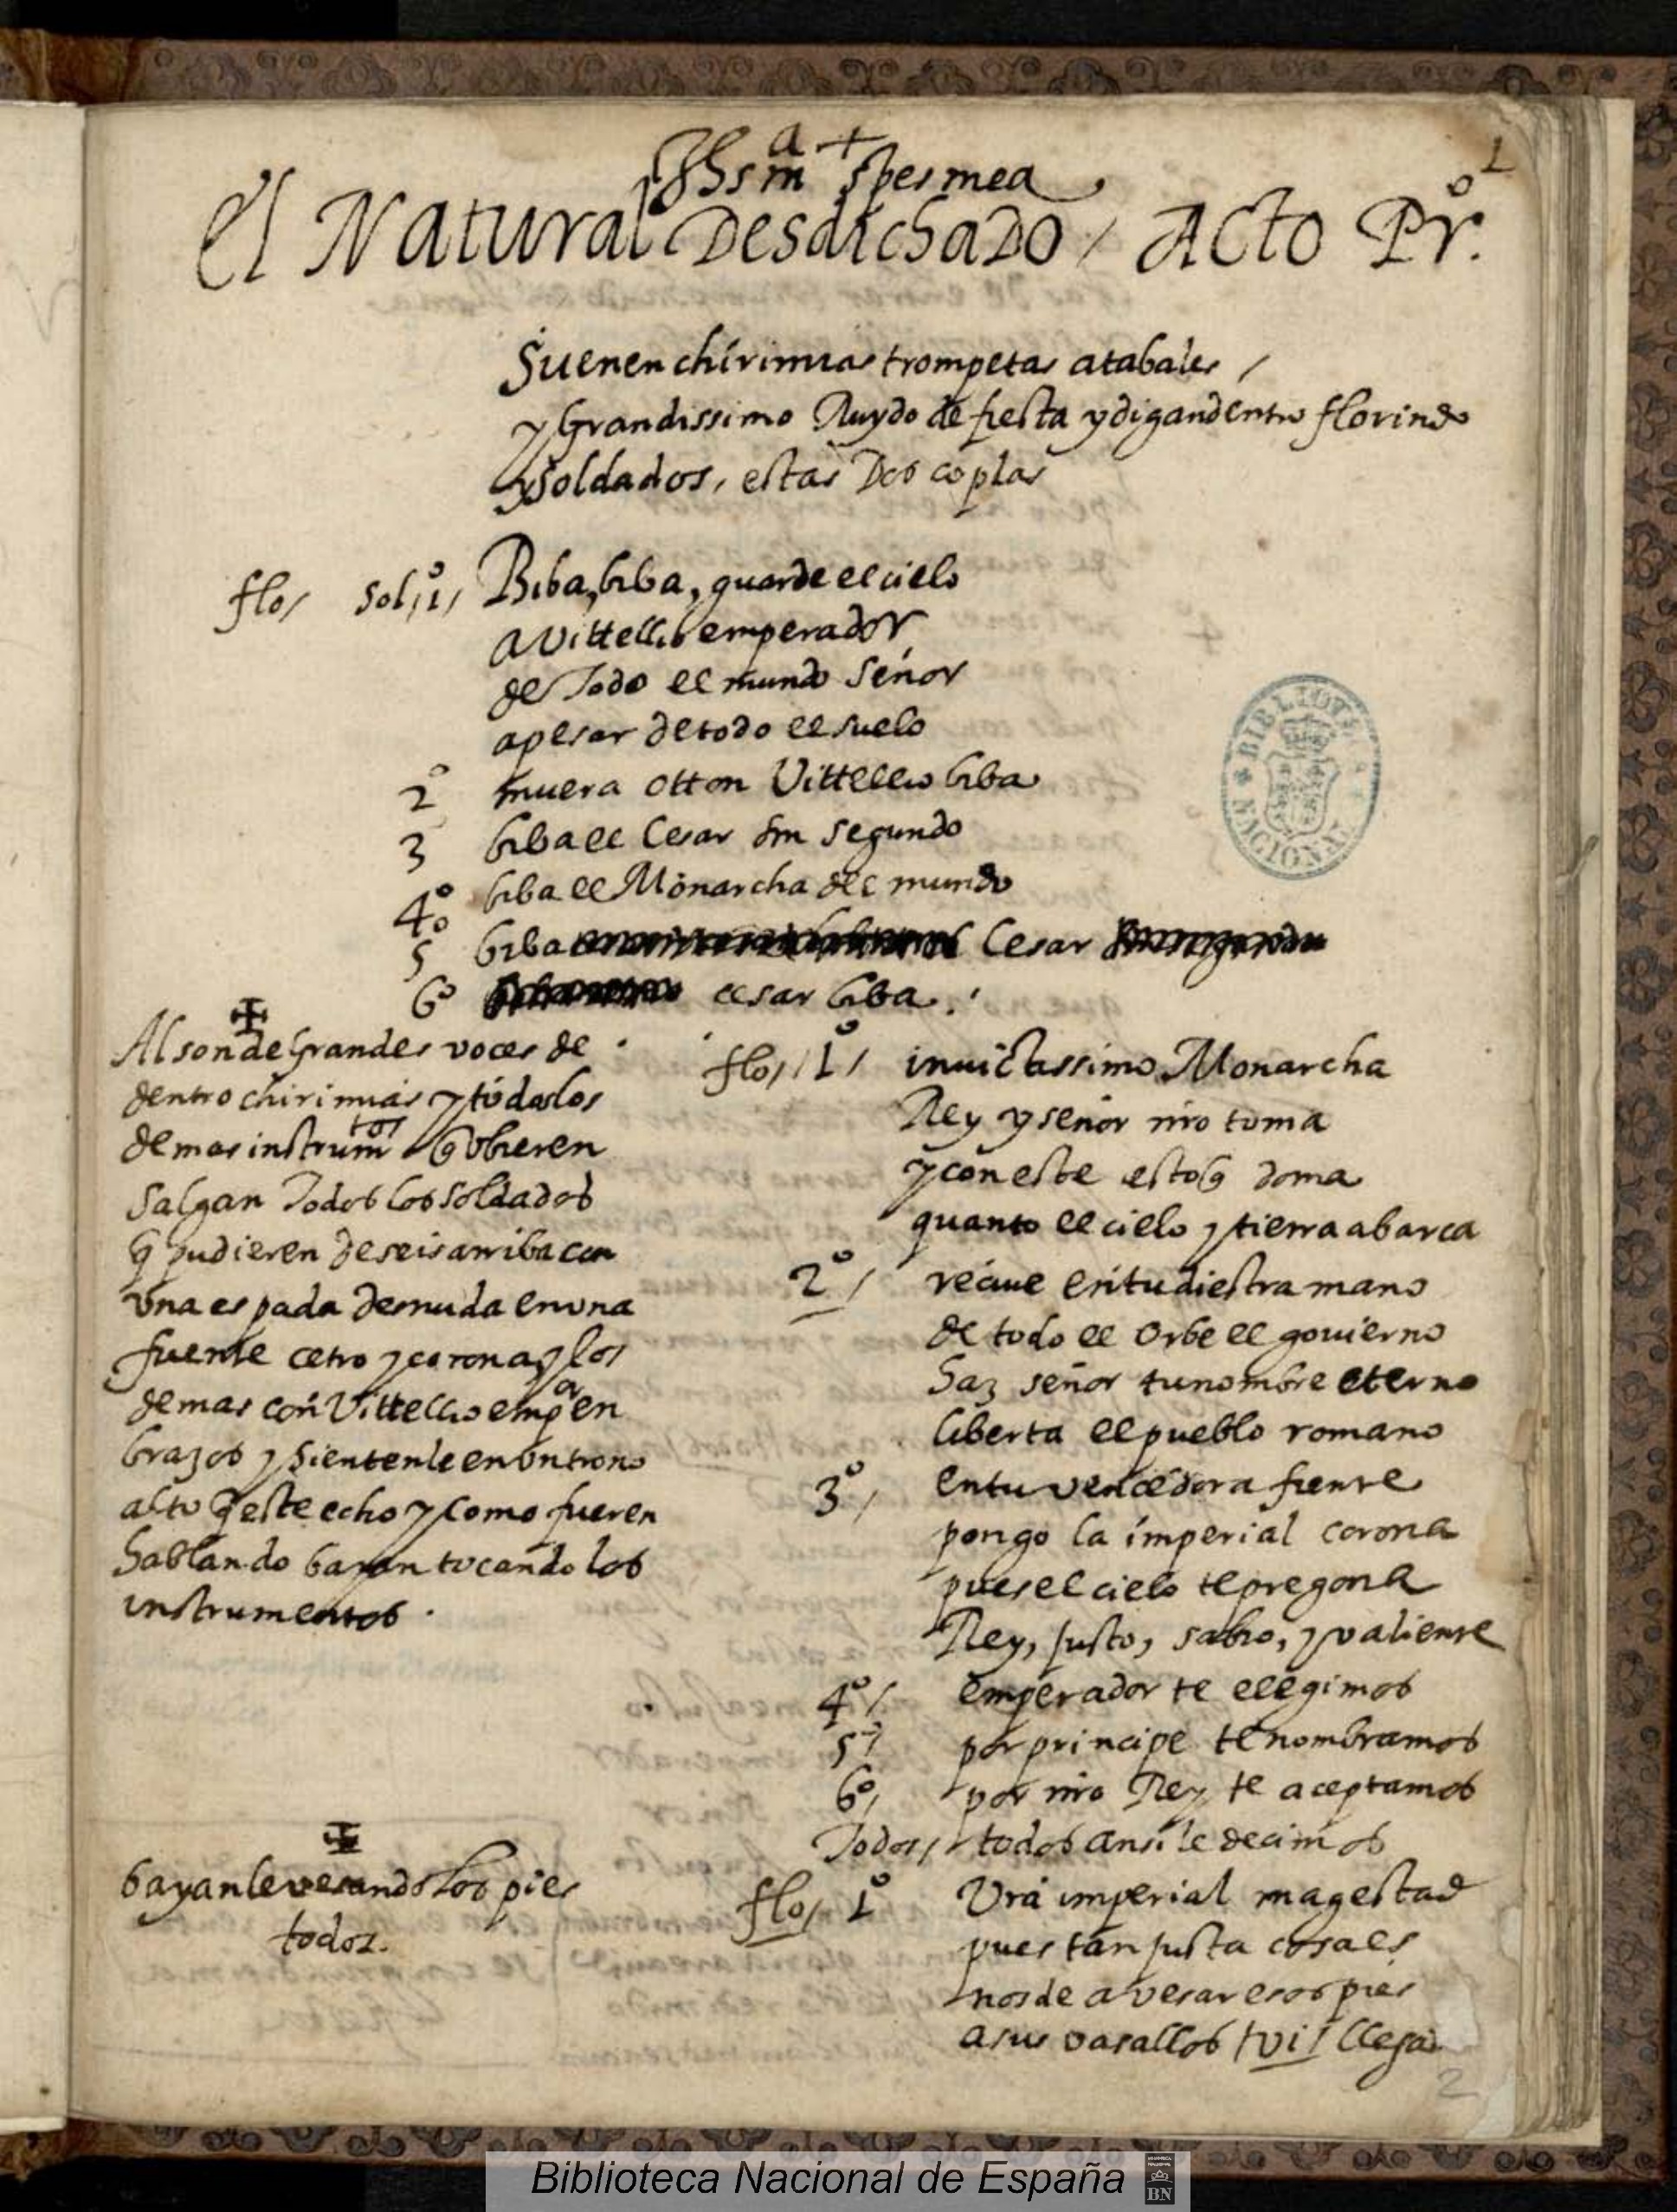 Jhs mª + spes mea
1
El Natural Desdichado / Acto Prº.
Suenen chirimias trompetas atabales /
y Grandissimo Ruydo de fiesta y digan dentro florindo
y soldados, estas Dos coplas
flo/ sol, 1º, Biba, biba, guarde el cielo
a Vittellio emperador
de Todo el mundo Señor
a pesar de todo el suelo
2º muera otton Vittellio biba
3 biba el Cesar sin segundo
4º biba el Monarcha del mundo
5º biba Cesar
6º cesar biba.
Al son de Grandes voces de
dentro chirimias y todos los
demas instrumtos q Vbieren
salgan Todos los soldados
q pudieren de seis arriba con
vna espada desnuda en vna
fuente cetro y corona y los
demas con Vittellio empor en
brazos y sientenle en Vn trono
alto q este echo y como fueren
hablando bayan tocando los
instrumentos.
flo/ 1º/ inuictissimo Monarcha
Rey y señor nro toma
y con este estoq doma
quanto el cielo y tierra abarca
2º/ reciue en tu diestra mano
de todo el Orbe el gouierno
haz señor tu nombre eterno
liberta el pueblo romano
3º, en tu vencedora frente
pongo la imperial corona
pues el cielo te pregona
Rey, justo, sabio, y valiente
4º/ emperador te elegimos
5º por principe te nombramos
6º, por nro Rey te aceptamos
Todos/ todos ansi le decimos
bayanle vesando los pies
todos.
flo/ 1º Vra imperial magestad
pues tan justa cosa es
nos de a vesar esos pies
a sus vasallos / vi / llegad
2
BIBLIOTECA NACIONAL
Biblioteca Nacional de España
BN